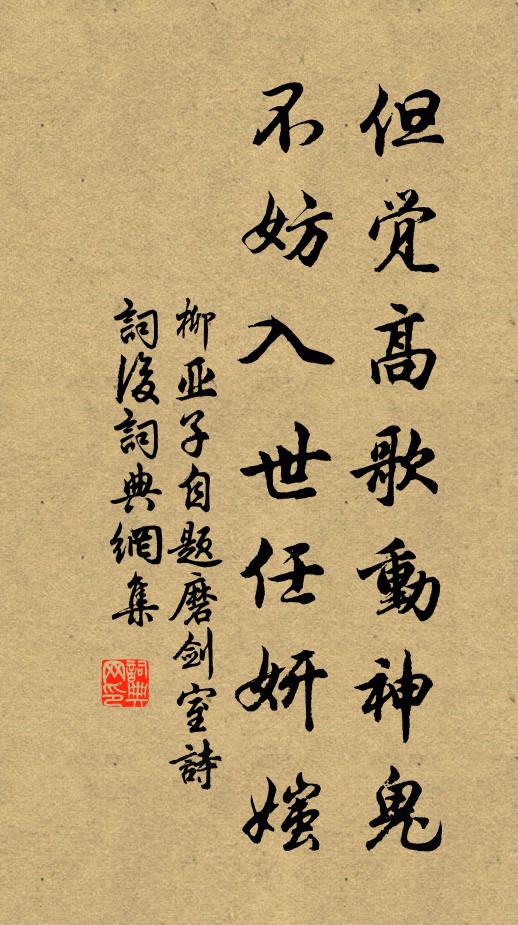 但觉高歌動神鬼
不妨入世任妍媸
柳亚子自题磨剑室詩
詞後詞典網集
詞典网印